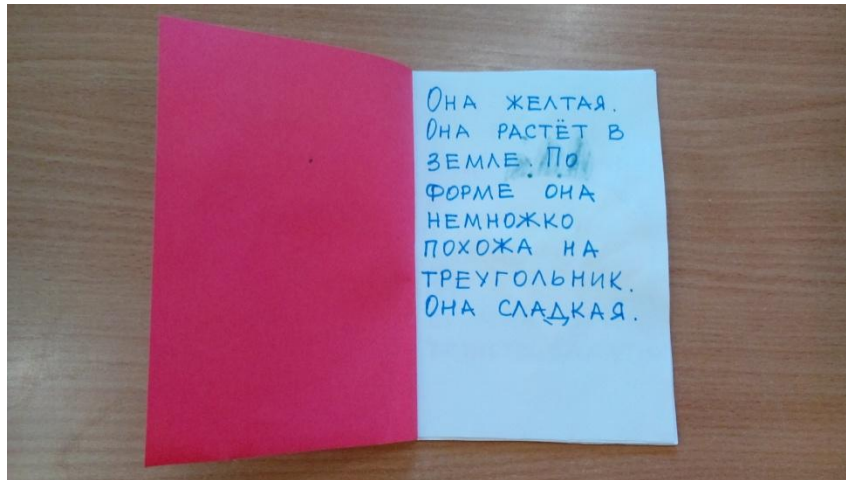 Она желтая.
Она растёт в
земле. По
форме она
немножко
похожа на
треугольник.
Она сладкая.